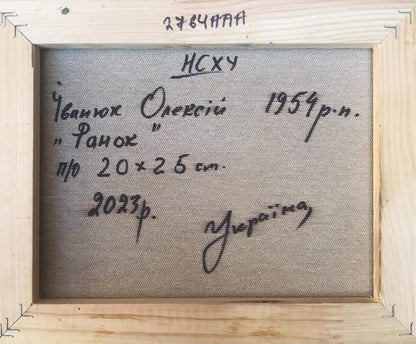 2764ААА
НСХУ
Іванюк Олексій 1954р.н.
"Ранок"
п/о 20×25 см.
2023р.
Україна,